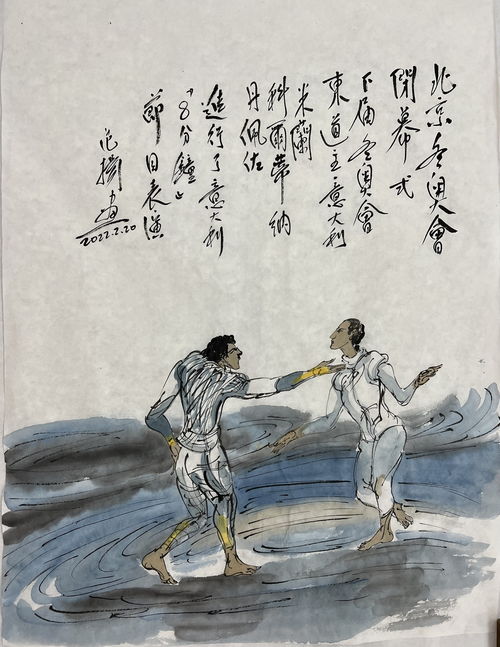 北京冬奧大會
閉幕式
下届冬奧會
東道主意大利
米蘭
科爾蒂納
丹佩佐
進行了意大利
"8分鐘"
節目表演
范擶畫
2022.2.20